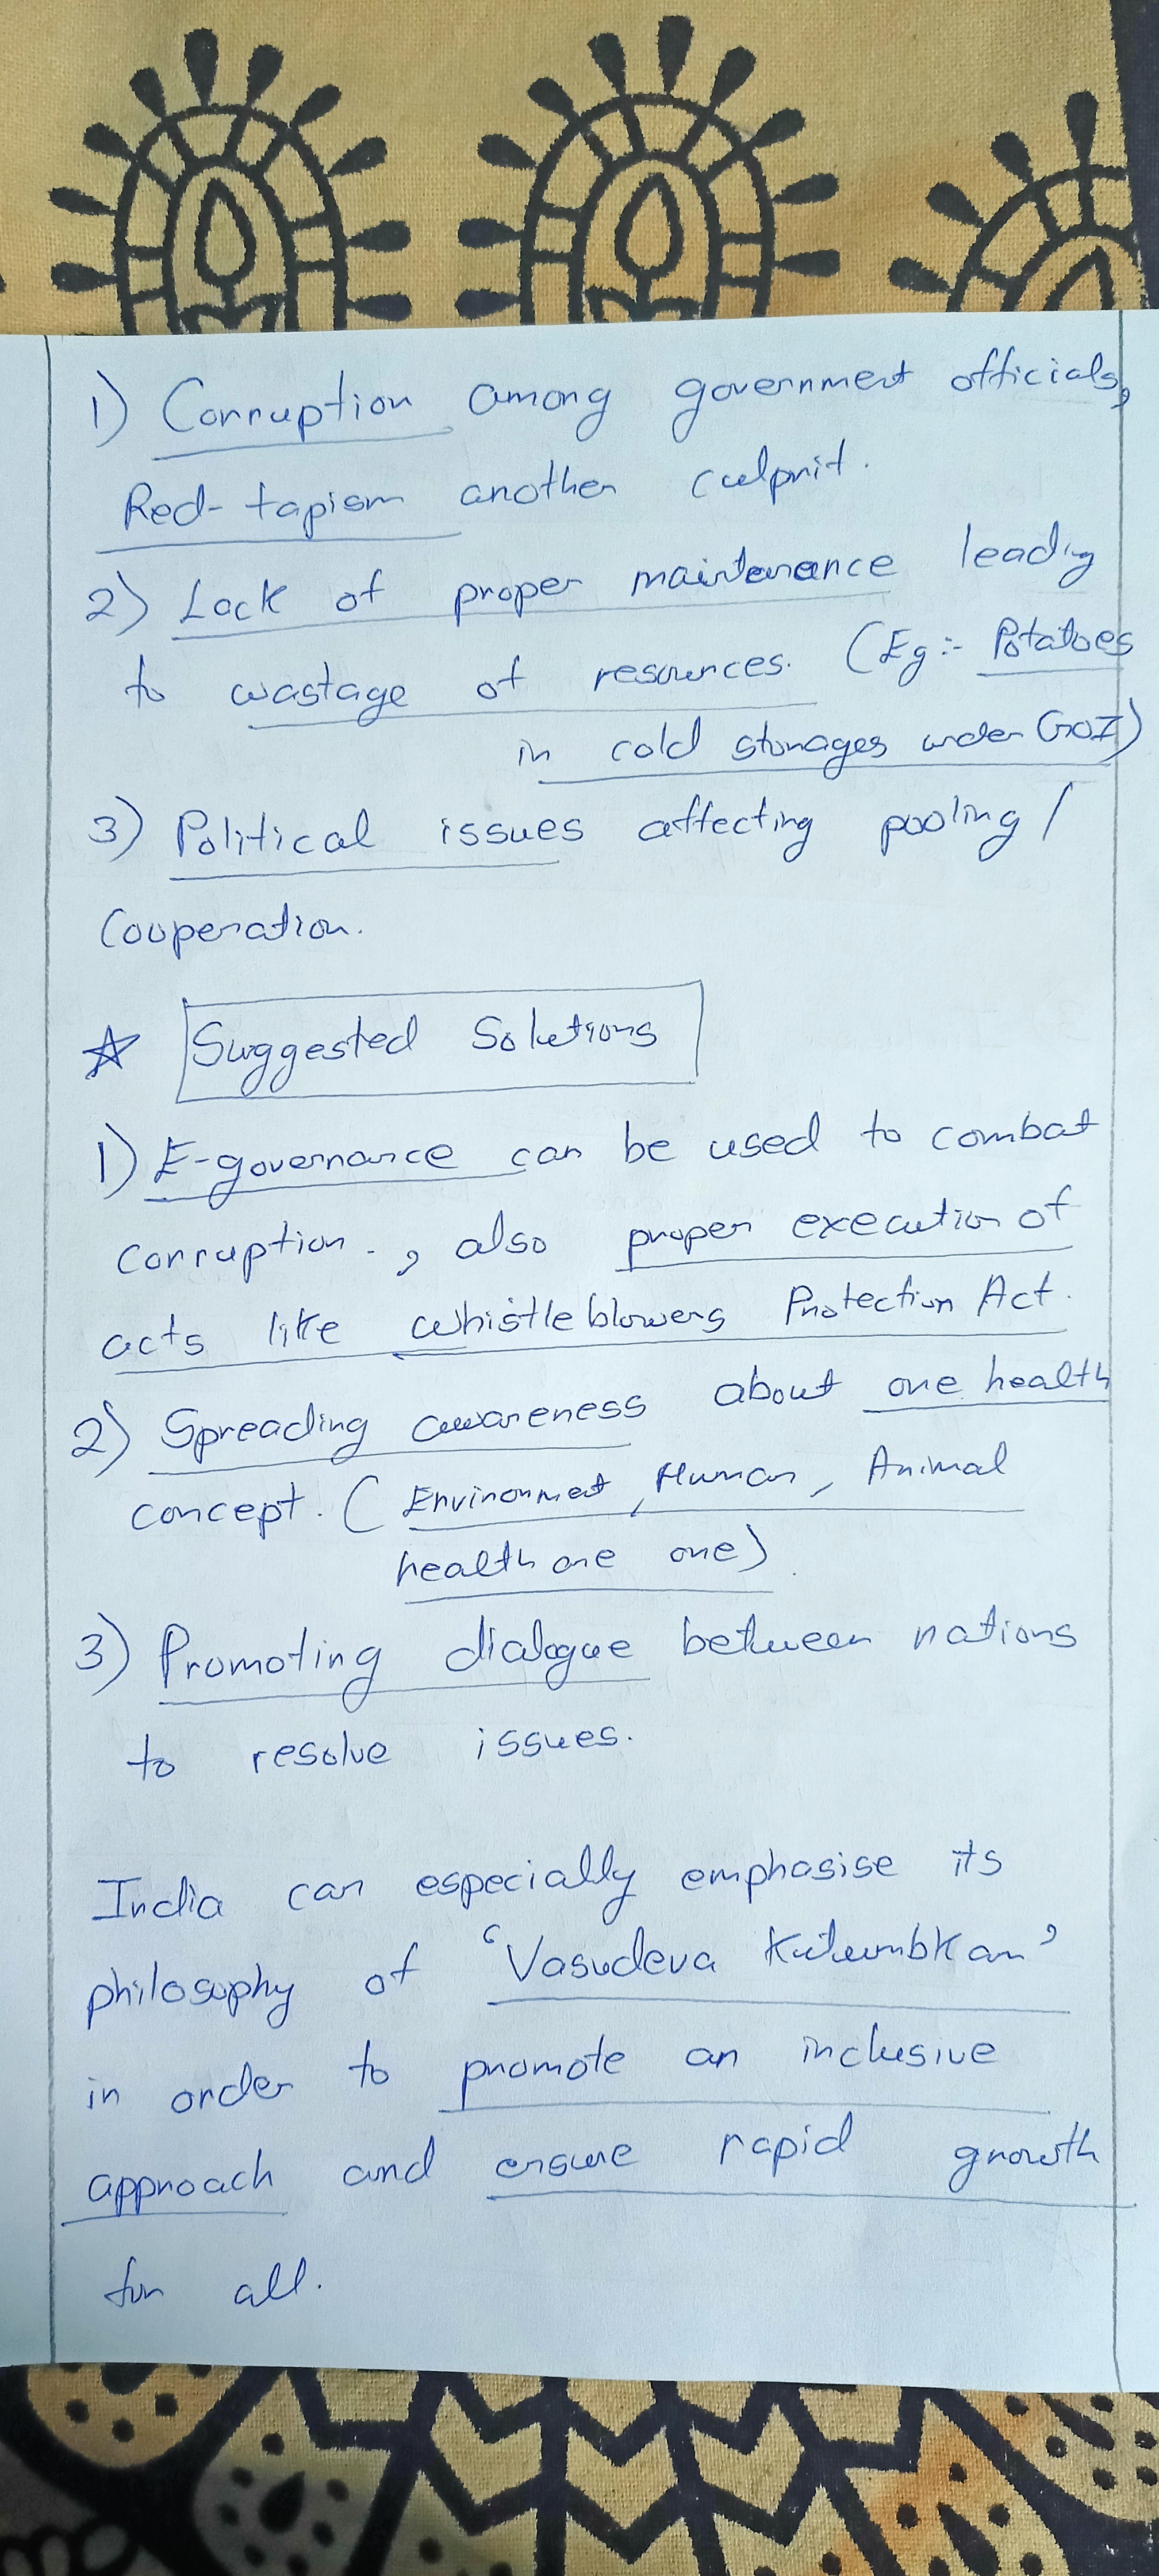 1) Corruption among government officials,
Red-tapism another culprit.
2) Lack of proper maintenance leading
to wastage of resources. (Eg:- Potatoes
in cold storages under GOI)
3) Political issues affecting pooling/
Cooperation.
☆ Suggested Solutions
1) E-governance can be used to combat
corruption. , also proper execution of
acts like whistleblowers Protection Act.
2) Spreading awareness about one health
concept. (Environment, Human, Animal
health are one)
3) Promoting dialogue between nations
to resolve issues.
India can especially emphasise its
philosophy of 'Vasudeva Kutumbkam'
in order to promote an inclusive
approach and ensure rapid growth
for all.